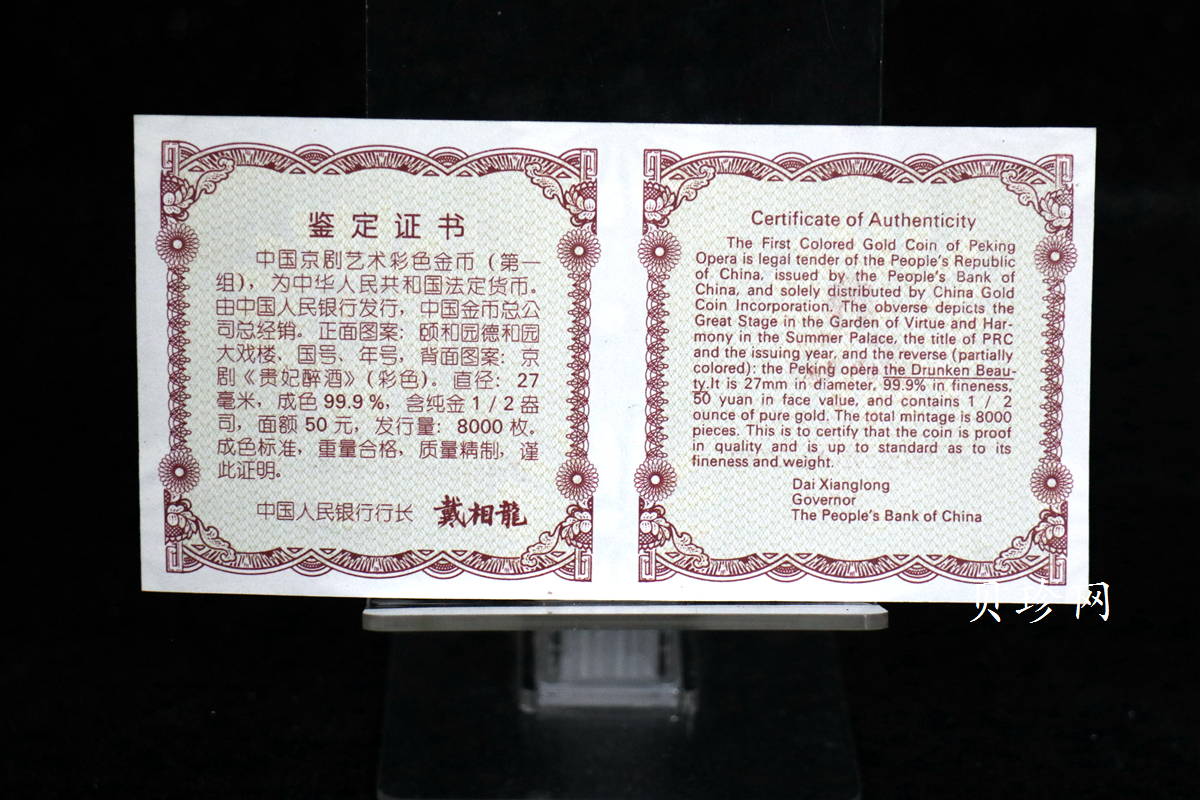 鉴定证书
中国京剧艺术彩色金币（第一
组），为中华人民共和国法定货币。
由中国人民银行发行，中国金币总公
司总经销。正面图案：颐和园德和园
大戏楼、国号、年号，背面图案：京
剧《贵妃醉酒》（彩色）。直径：27
毫米，成色99.9%，含纯金1/2盎
司，面额50元，发行量：8000枚。
成色标准，重量合格，质量精制，谨
此证明。
中国人民银行行长 戴相龍
Certificate of Authenticity
The First Colored Gold Coin of Peking
Opera is legal tender of the People's Republic
of China, issued by the People's Bank of
China, and solely distributed by China Gold
Coin Incorporation. The obverse depicts the
Great Stage in the Garden of Virtue and Har-
mony in the Summer Palace, the title of PRC
and the issuing year, and the reverse (partially
colored): the Peking opera the Drunken Beau-
ty.It is 27mm in diameter, 99.9% in fineness,
50 yuan in face value, and contains 1 / 2
ounce of pure gold. The total mintage is 8000
pieces. This is to certify that the coin is proof
in quality and is up to standard as to its
fineness and weight.
Dai Xianglong
Governor
The People's Bank of China
贝珍网